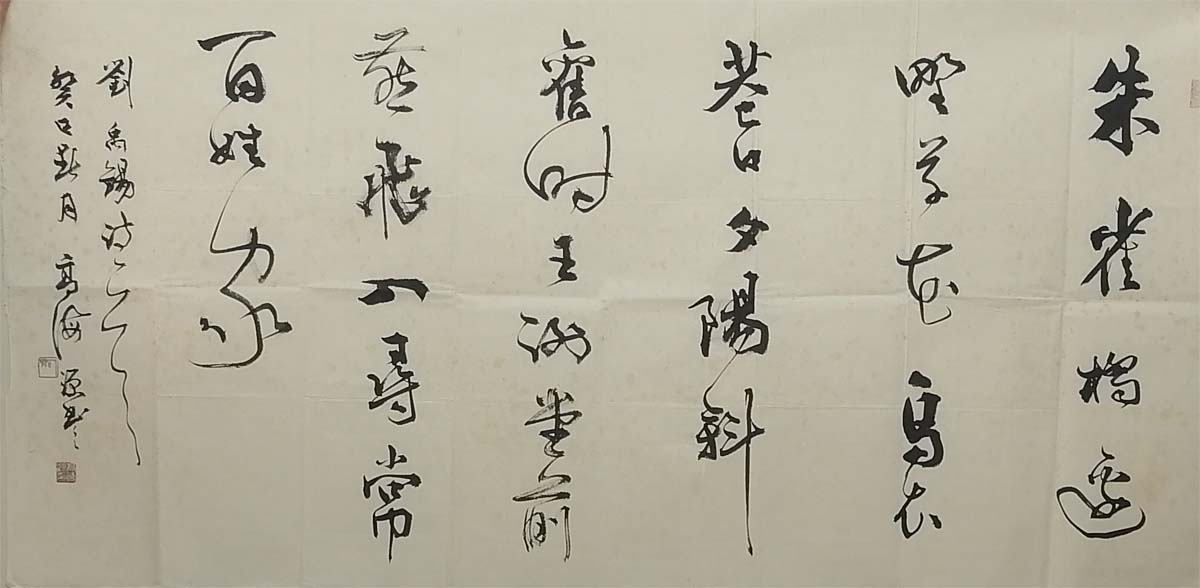 朱雀橋邊
野草花烏衣
巷口夕陽斜
舊時王謝堂前
燕飛入尋常
百姓家
劉禹錫詩
癸巳 月 高海源書